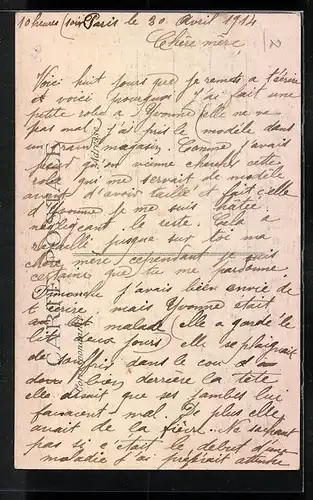 10 heures (soir) Paris le 30 Avril 1914
Chère mère
Voici huit jours que je remets a t'écrire
et voici pourquoi J'ai fait une
petite robe a Yvonne elle ne va
pas mal j'ai pris le modèle dans
un grand magasin. Comme j'avais
peur qu'on vienne chercher cette
robe qui me servait de modèle
avant d'avoir taillé et fait celle
d'Yvonne je me suis hatée
négligeant le reste. Cela a
rejailli jusque sur toi ma
chère mère, cependant je suis
certaine que tu me pardonne.
Dimanche j'avais bien envie de
t'ecrire mais Yvonne était
malade (elle a gardé le
lit deux jours) elle se plaignait
de souffrir dans le cou
derrière la tête
elle disait que ses jambes lui
faisaient mal. De plus elle
avait de la fièvre. Ne sachant
pas si c'était le debut d'une
maladie j'ai préféré attendre
CARTE POSTALE
Correspondance